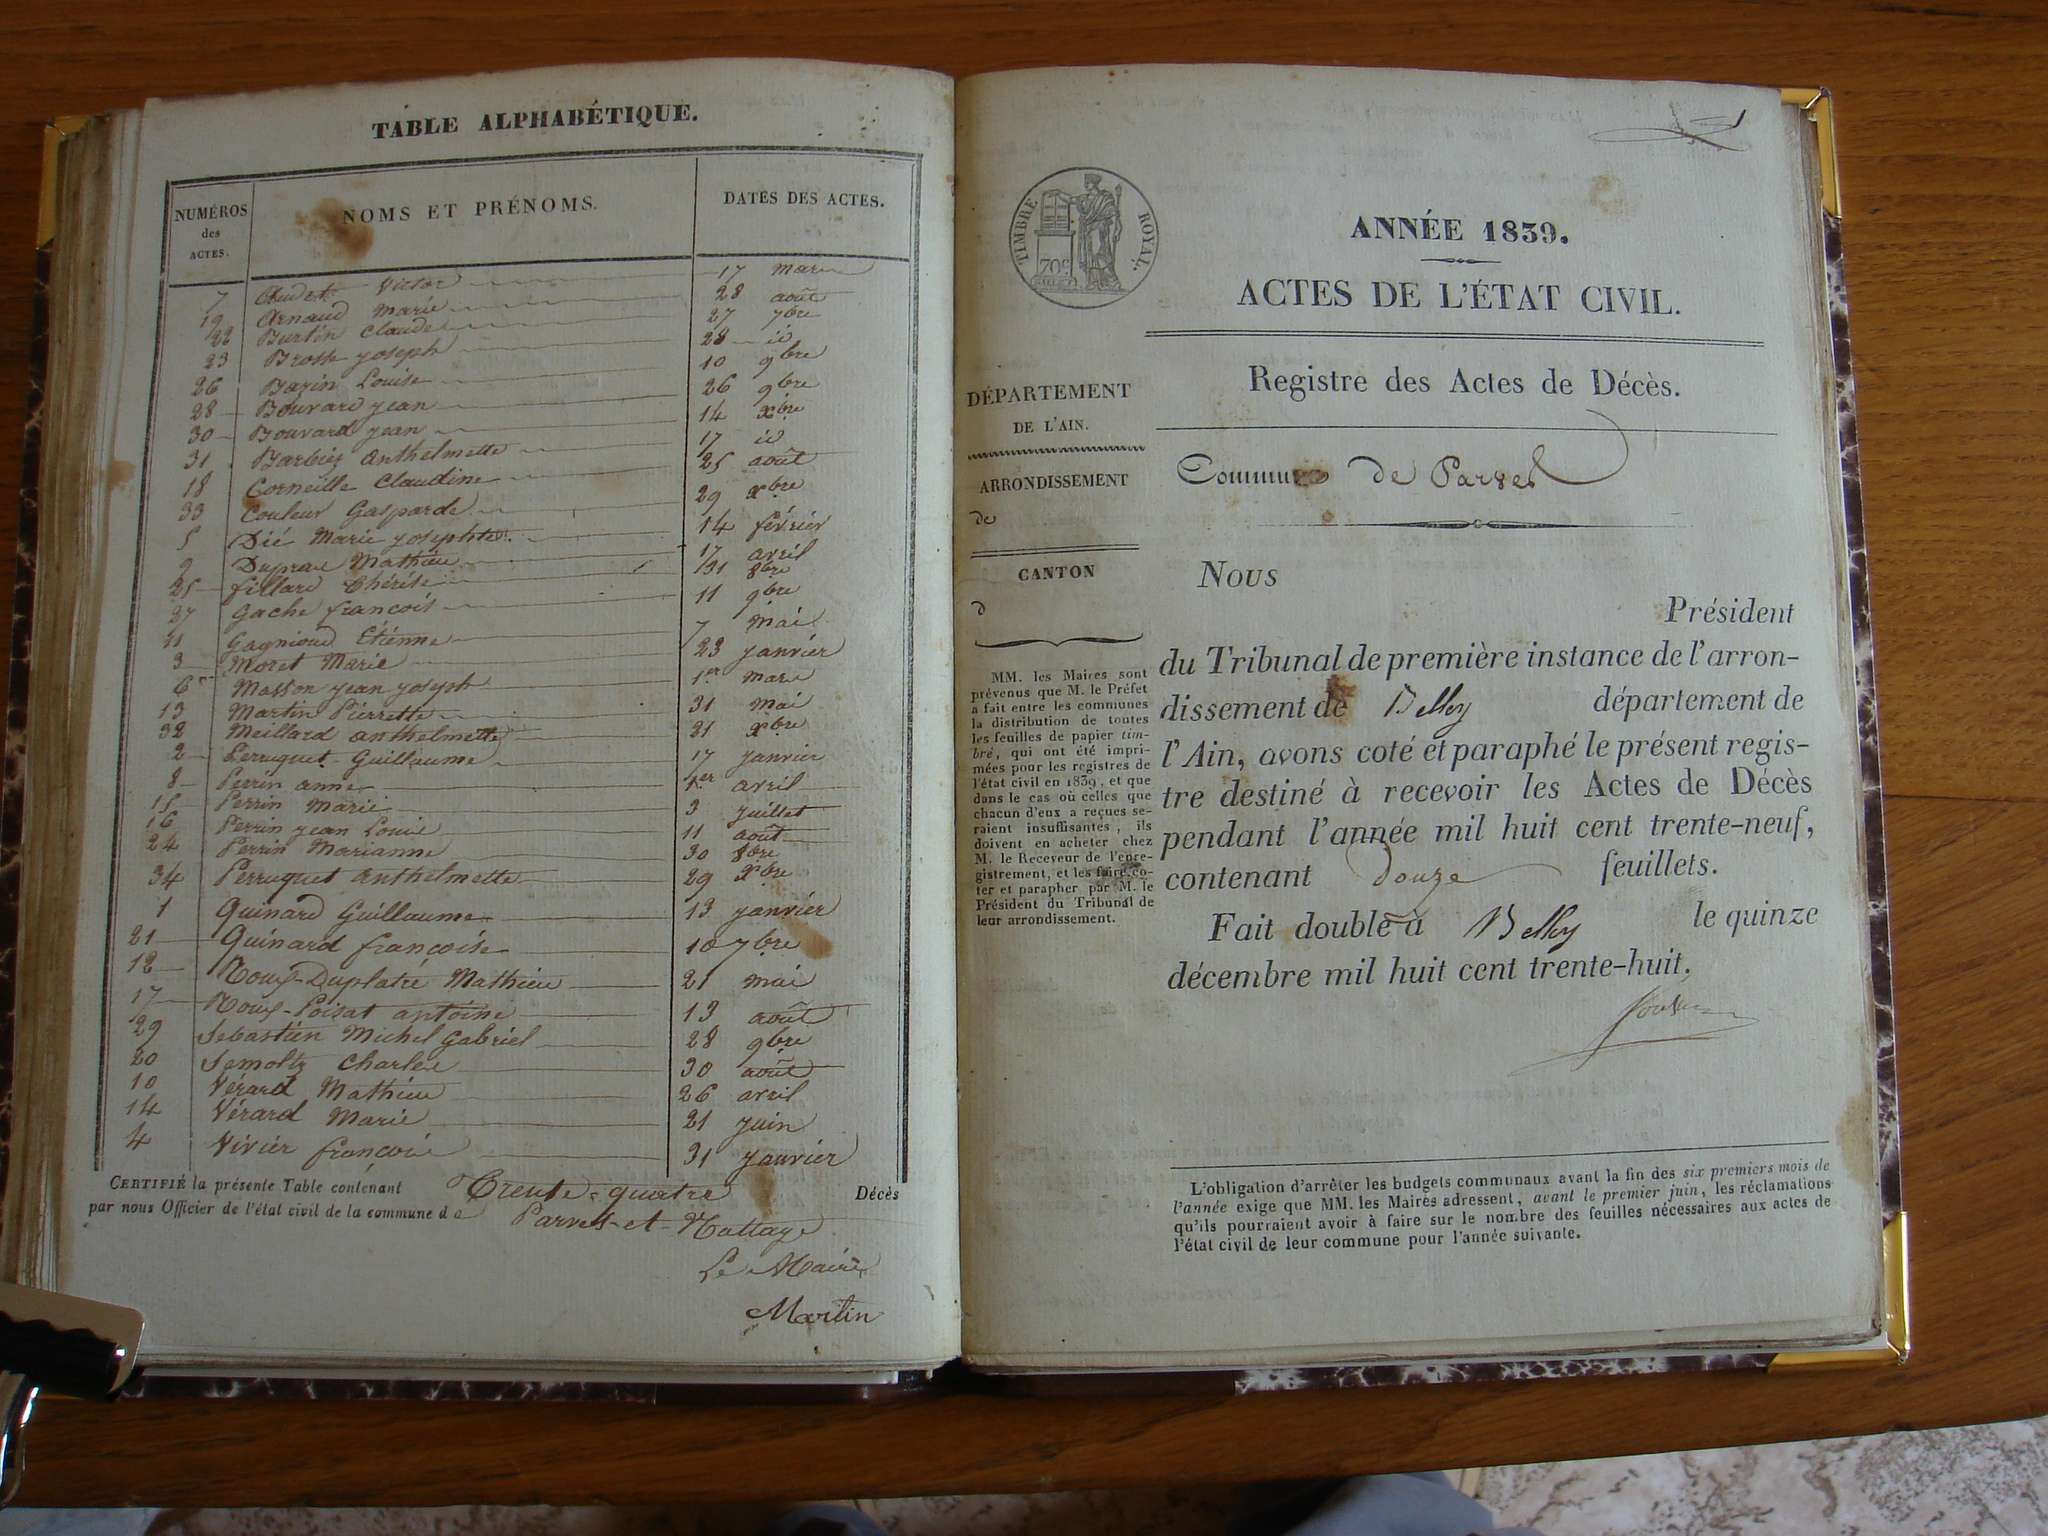 TABLE ALPHABÉTIQUE.
NUMÉROS des ACTES. NOMS ET PRÉNOMS. DATES DES ACTES.
7 Victor 17 mars
19 Arnaud Marie 28 août
22 Burtin Claude 27 7bre
23 Joseph 28 id
26 Bazin Louise 10 9bre
28 Bouvard jean 26 9bre
30 Bouvard jean 14 xbre
31 Barbier anthelmette 17 id
18 Corneille Claudine 25 août
33 Couleur Gasparde 29 xbre
5 Dié Marie josephte 14 février
9 Mathieu 17 avril
25 fillard Thérèse 31 8bre
27 Gache françois 11 9bre
11 Gagnioud Etienne 7 mai
3 Moret Marie 23 janvier
6 Masson jean joseph 1er mars
13 Martin Pierrette 31 mai
32 Meillard anthelmette 21 xbre
2 Perruquet Guillaume 17 janvier
8 Perrin anne 1er avril
15 Perrin Marie 3 juillet
16 Perrin jean Louis 11 août
24 Perrin Marianne 30 8bre
34 Perruquet anthelmette 29 xbre
1 Quinard Guillaume 13 janvier
21 Quinard françoise 10 7bre
12 Roux-Duplatré Mathieu 21 mai
17 Roux-Poisat antoine 13 août
29 Sebastien Michel Gabriel 28 9bre
20 Semoltz Charles 30 août
10 Vérard Mathieu 26 avril
14 Vérard Marie 21 juin
4 Vivier françois 31 janvier
CERTIFIÉ la présente Table contenant Trente-quatre Décès
par nous Officier de l'état civil de la commune de Parves-et-Nattage
Le Maire
Martin
1
TIMBRE ROYAL.
70c
ANNÉE 1839.
ACTES DE L'ÉTAT CIVIL.
Registre des Actes de Décès.
Commune de Parves
DÉPARTEMENT
DE L'AIN.
ARRONDISSEMENT
de
CANTON
d
MM. les Maires sont
prévenus que M. le Préfet
a fait entre les communes
la distribution de toutes
les feuilles de papier tim-
bré, qui ont été impri-
mées pour les registres de
l'état civil en 1839, et que
dans le cas où celles que
chacun d'eux a reçues se-
raient insuffisantes, ils
doivent en acheter chez
M. le Receveur de l'enre-
gistrement, et les faire co-
ter et parapher par M. le
Président du Tribunal de
leur arrondissement.
Nous
Président
du Tribunal de première instance de l'arron-
dissement de Belley département de
l'Ain, avons coté et paraphé le présent regis-
tre destiné à recevoir les Actes de Décès
pendant l'année mil huit cent trente-neuf,
contenant douze feuillets.
Fait double à Belley le quinze
décembre mil huit cent trente-huit.
L'obligation d'arrêter les budgets communaux avant la fin des six premiers mois de
l'année exige que MM. les Maires adressent, avant le premier juin, les réclamations
qu'ils pourraient avoir à faire sur le nombre des feuilles nécessaires aux actes de
l'état civil de leur commune pour l'année suivante.